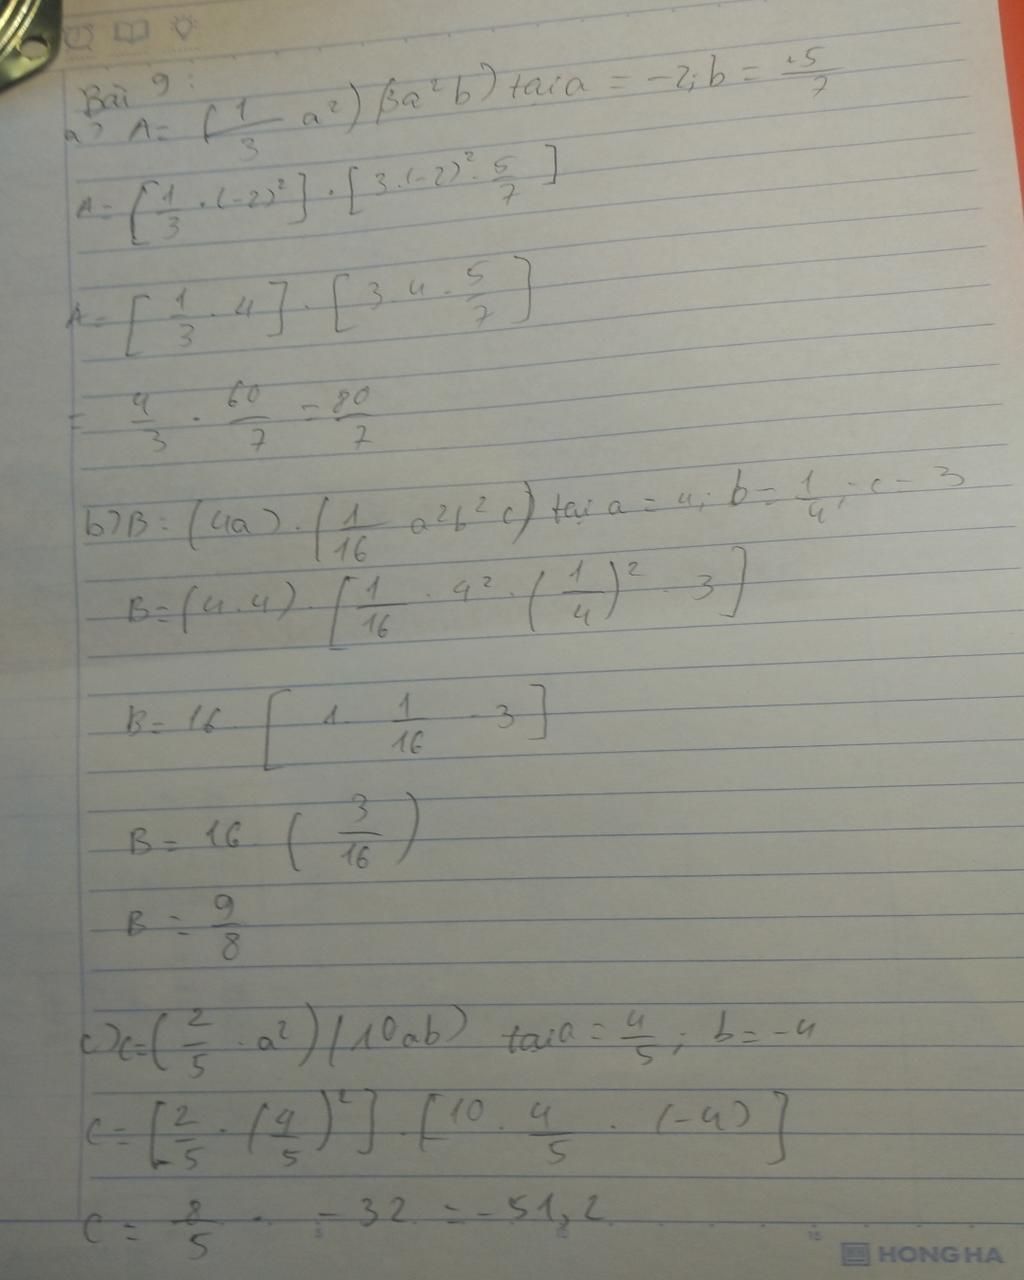 Bài 9:
a) A = (1/3 a²) (3a²b) tại a = -2; b = 5/7
A = [1/3 . (-2)²] . [3.(-2)² . 5/7]
A = [1/3 . 4] . [3.4 . 5/7]
= 4/3 . 60/7 = 80/7
b) B = (4a) . (1/16 a²b²c) tại a = 4; b = 1/4; c = 3
B = (4.4) . [1/16 . 4² . (1/4)² . 3]
B = 16 [1 . 1/16 . 3]
B = 16 (3/16)
B = 9/8
c) C = (2/5 . a²) (10ab) tại a = 4/5; b = -4
C = [2/5 . (4/5)²] . [10 . 4/5 . (-4)]
C = 8/5 . -32 = -51,2
5 10 15
HONG HA